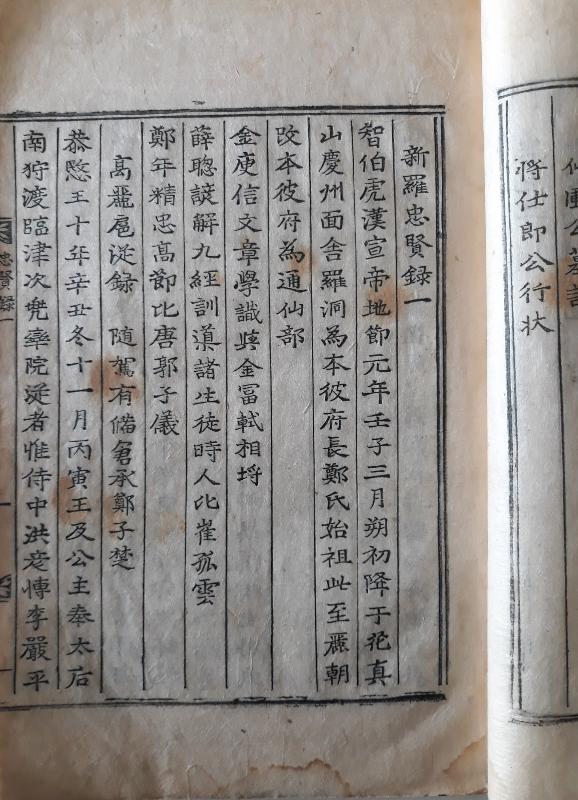 將仕郎公行狀
新羅忠賢錄一
智伯虎漢宣帝地節元年壬子三月朔初降于花真
山慶州面舍羅洞為本彼府長鄭氏始祖此至麗朝
改本彼府為通仙部
金庾信文章學識與金冨軾相埒
薛聰諺解九經訓導諸生徒時人比崔孤雲
鄭年精忠高節比唐郭子儀
高麗扈從録 隨駕有備承鄭子楚
恭愍王十年辛丑冬十一月丙寅王及公主奉太后
南狩渡臨津次兜率院從者惟侍中洪彦博李嚴平
忠賢錄一